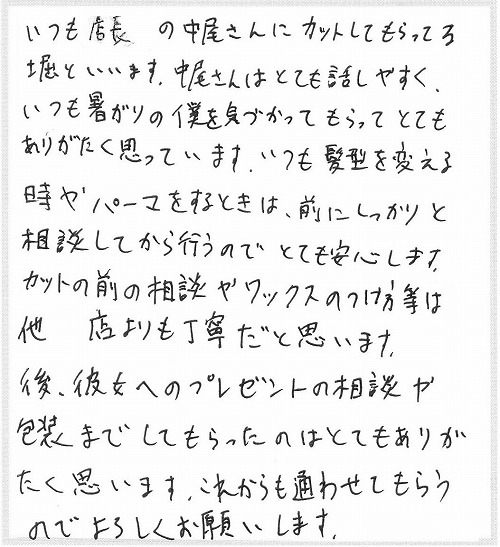 いつも店長 の中尾さんにカットしてもらってる
堀といいます。中尾さんはとても話しやすく、
いつも暑がりの僕を気づかってもらってとても
ありがたく思っています。いつも髪型を変える
時やパーマをするときは、前にしっかりと
相談してから行うのでとても安心します。
カットの前の相談やワックスのつけ方等は
他 店よりも丁寧だと思います。
後、彼女へのプレゼントの相談や
包装までしてもらったのはとてもありが
たく思います。これからも通わせてもらう
のでよろしくお願いします。